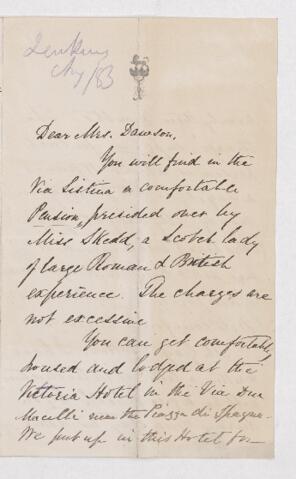 Jenkins
Aug/83
Dear Mrs. Dawson,
You will find in the
Via Sistina a comfortable
Pension, presided over by
Miss Skedd, a Scotch lady
of large Roman & British
experience. The charges are
not excessive
You can get comfortably
housed and lodged at the
Victoria Hotel in the Via Due
Macelli near the Piazza di Spagna.
We put up in this Hotel for